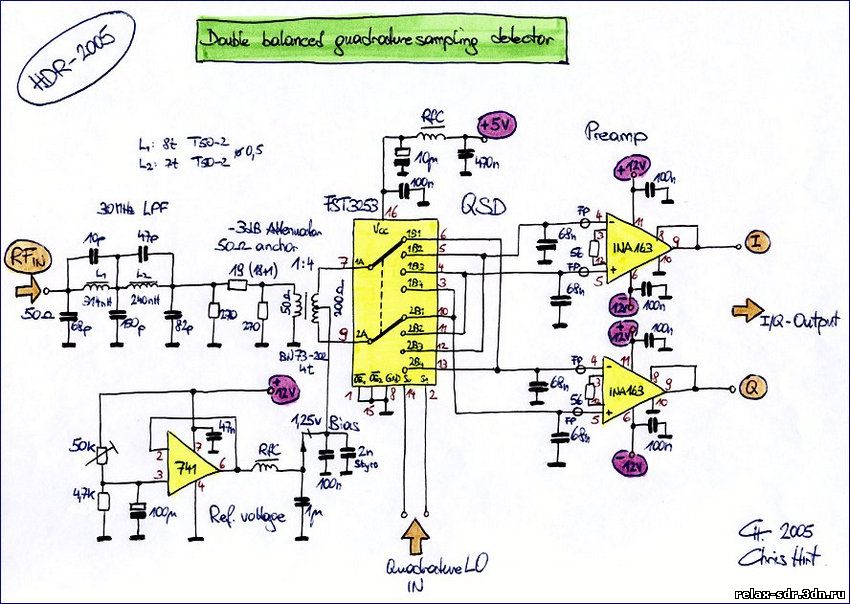 HDR-2005
Double balanced quadrature sampling detector
L1: 8t T50-2
L2: 7t T50-2 ø0,5
RFC
+5V
10µ
470n
100n
Preamp
+12V
100n
30MHz LPF
10p
47p
FST3253
16
QSD
-3dB Attenuator
50Ω anchor
RFIN
50Ω
L1
314nH
L2
240nH
68p
150p
82p
270
18 (18+1)
270
1:4
50Ω
200Ω
BN73-202
4t
Vcc
7
1A
9
2A
1B1
1B2
1B3
1B4
2B1
2B2
2B3
2B4
6
5
4
3
10
11
12
13
OE1
OE2
GND
S0
S1
1
15
8
14
2
68n
68n
FP
FP
56
4
3
12
5
11
INA163
8
9
10
6
I
-12V
100n
I/Q-Output
+12V
100n
68n
68n
FP
FP
56
4
3
12
5
11
INA163
8
9
10
6
Q
-12V
100n
+12V
50k
4.7K
100µ
47n
7
2
3
741
6
4
RFC
1,25V
Bias
100n
2n
Styro
1µ
Ref. voltage
Quadrature LO
IN
CH. 2005
Chris Hirt
relax-sdr.3dn.ru